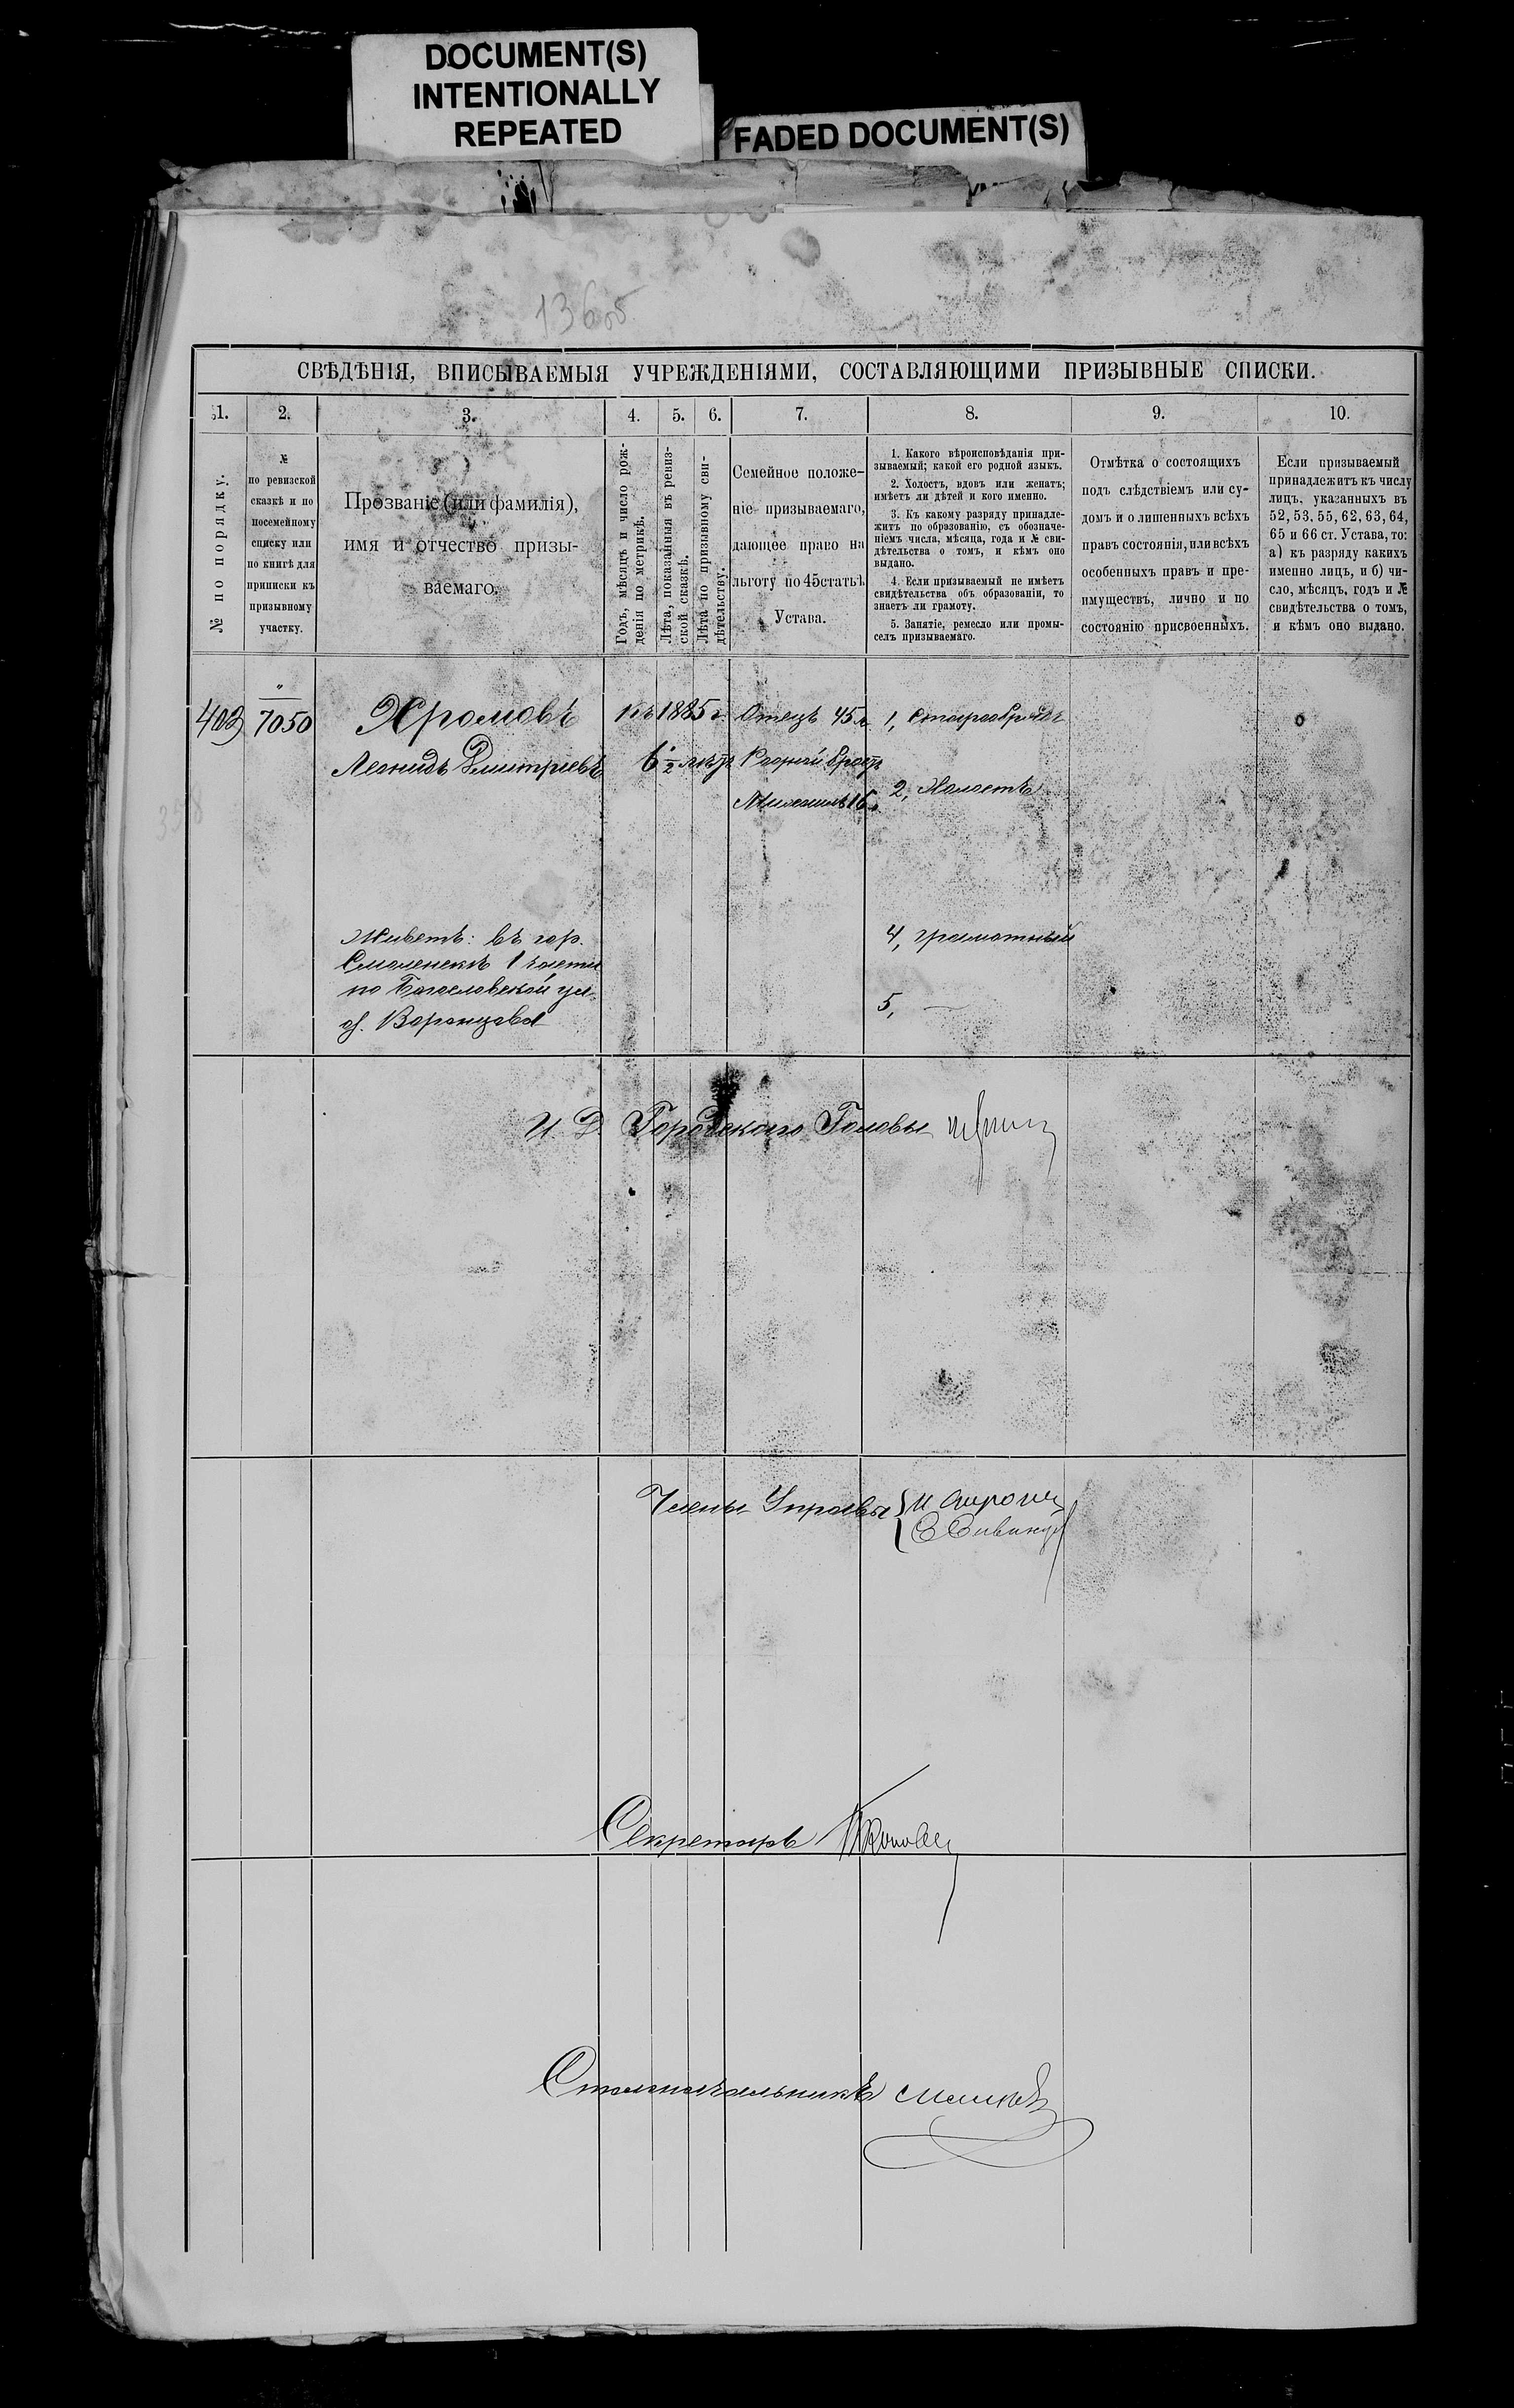 DOCUMENT(S)
INTENTIONALLY
REPEATED
FADED DOCUMENT(S)
СВѢДѢНІЯ, ВПИСЫВАЕМЫЯ УЧРЕЖДЕНІЯМИ, СОСТАВЛЯЮЩИМИ ПРИЗЫВНЫЕ СПИСКИ.
1. 2. 3. 4. 5. 6. 7. 8. 9. 10.
№ по порядку.
№
по ревизской
сказкѣ и по
посемейному
списку или
по книгѣ для
приписки къ
призывному
участку.
Прозваніе (или фамилія),
имя и отчество призы-
ваемаго.
Годъ, мѣсяцъ и число рож-
денія по метрикѣ.
Лѣта, показанныя въ ревиз-
ской сказкѣ.
Лѣта по призывному сви-
дѣтельству.
Семейное положе-
ніе призываемаго,
дающее право на
льготу по 45 статьѣ
Устава.
1. Какого вѣроисповѣданія при-
зываемый; какой его родной языкъ.
2. Холостъ, вдовъ или женатъ;
имѣетъ ли дѣтей и кого именно.
3. Къ какому разряду принадле-
житъ по образованію, съ обозначе-
ніемъ числа, мѣсяца, года и № сви-
дѣтельства о томъ, и кѣмъ оно
выдано.
4. Если призываемый не имѣетъ
свидѣтельства объ образованіи, то
знаетъ ли грамоту.
5. Занятіе, ремесло или промы-
селъ призываемаго.
Отмѣтка о состоящихъ
подъ слѣдствіемъ или су-
домъ и о лишенныхъ всѣхъ
правъ состоянія, или всѣхъ
особенныхъ правъ и пре-
имуществъ, лично и по
состоянію присвоенныхъ.
Если призываемый
принадлежитъ къ числу
лицъ, указанныхъ въ
52, 53, 55, 62, 63, 64,
65 и 66 ст. Устава, то:
а) къ разряду какихъ
именно лицъ, и б) чи-
сло, мѣсяцъ, годъ и №
свидѣтельства о томъ,
и кѣмъ оно выдано.
7050
Хромовъ
Леонидъ Дмитріевъ
Живетъ: въ гор.
Смоленскѣ 1 части
по Богословской ул.
д. Воронцова
1885 г.
Отецъ 45 л.
Родной братъ
16
1, Старообрядъ
2, Холостъ
4, грамотный
5, —
И. Д. Городского Головы
Члены Управы
Секретарь
Столоначальникъ